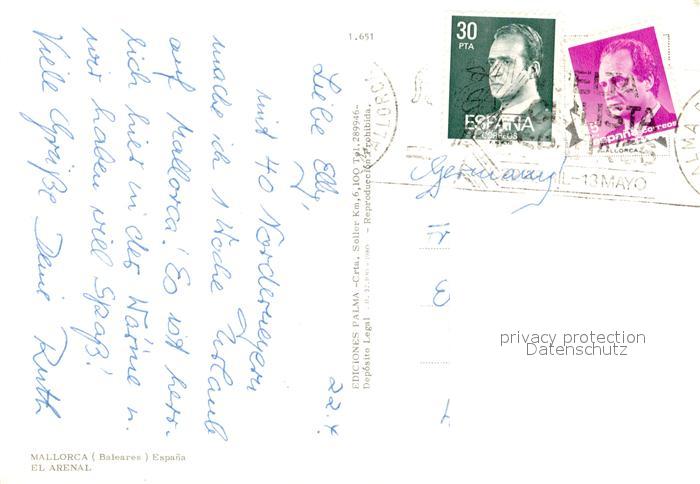 1.651
30
PTA
ESPAÑA
CORREOS
España Correos
MALLORCA
13 MAYO
Germany
22.4.
Liebe Elly!
mit 40 Norderneyern
mache ich 1 Woche Urlaub
auf Mallorca! Es ist herr-
lich hier in der Wärme u.
wir haben viel Spaß!
Viele Grüße Deine Ruth
EDICIONES PALMA -Crta. Soller Km,6,100 Tel.289946-
Depósito Legal - Reproducción Prohibida.
privacy protection
Datenschutz
MALLORCA ( Baleares ) España
EL ARENAL